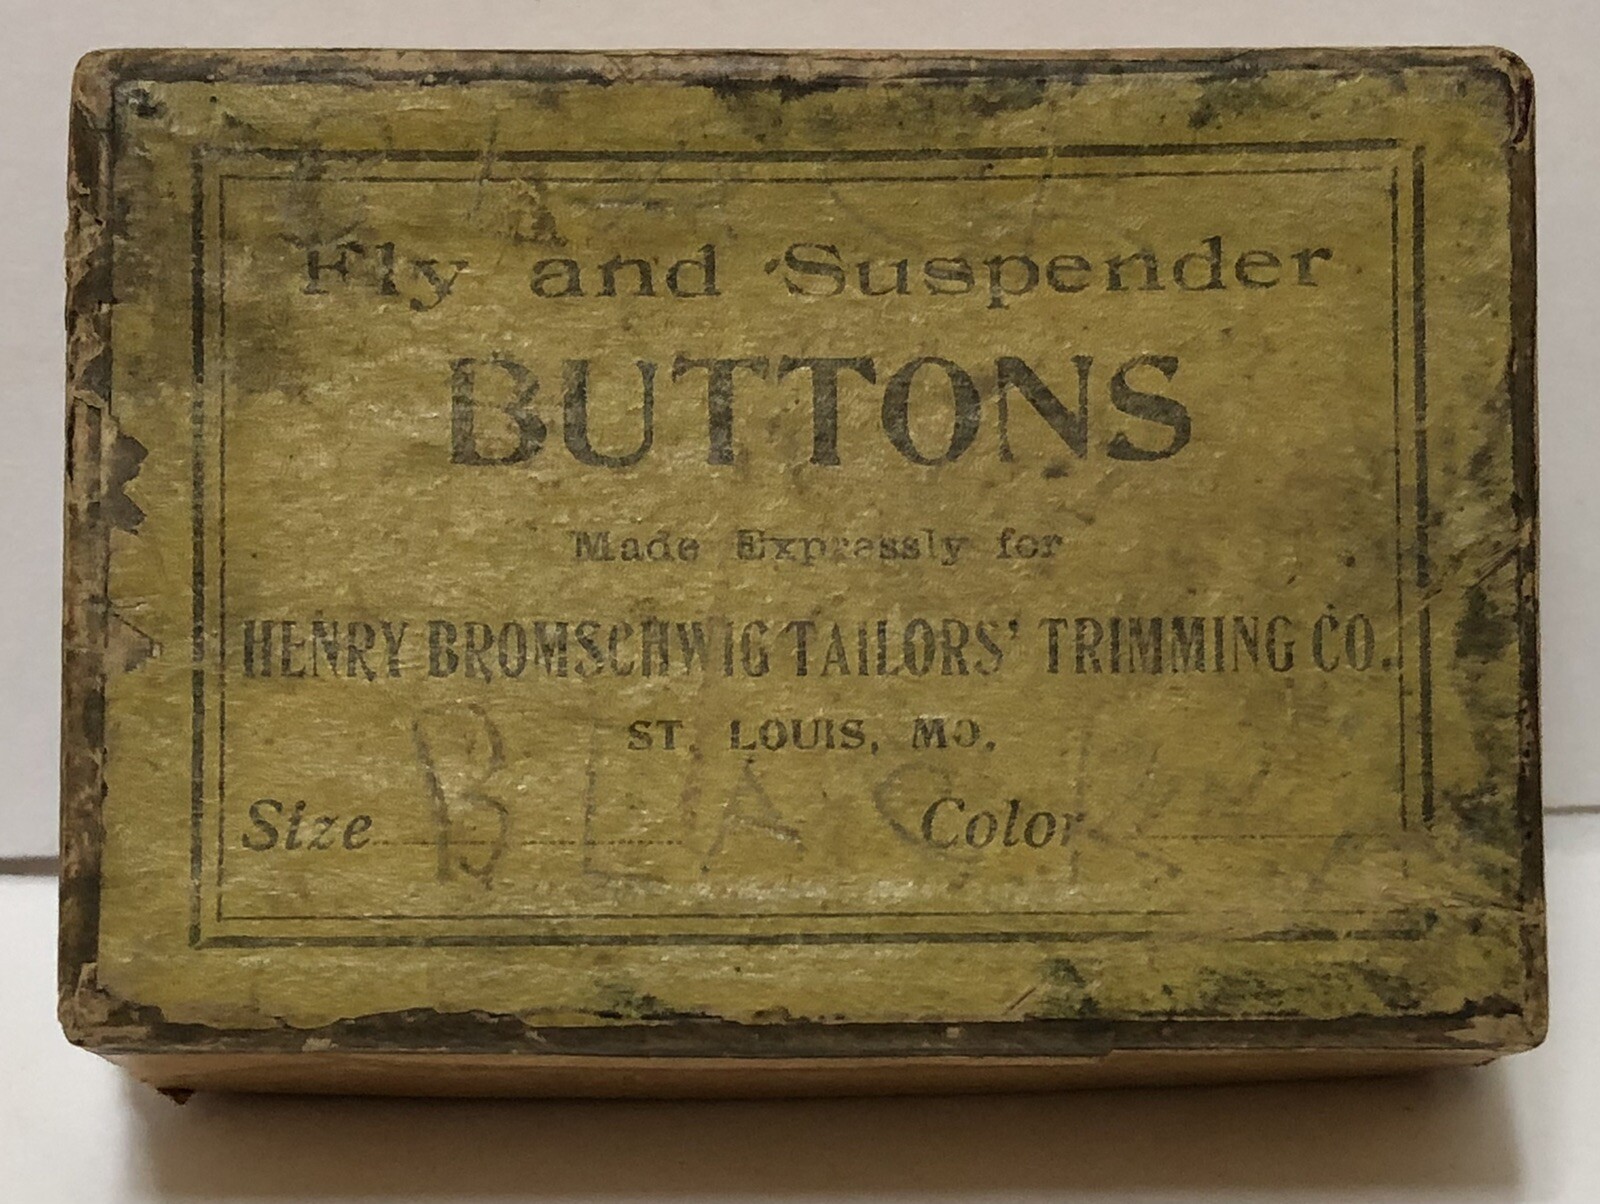 Fly and Suspender
BUTTONS
Made Expressly for
HENRY BROMSCHWIG TAILORS' TRIMMING CO.
ST. LOUIS, MO.
BLACK
Size Color